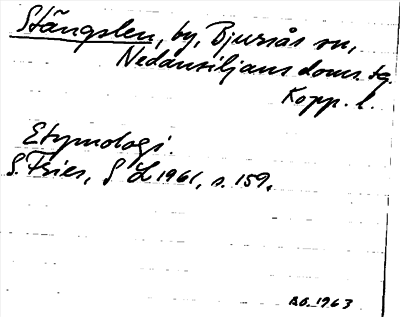 Stängslen, by, Bjursås sn,
Nedansiljans doms. tg.
Kopp. l.
Etymologi.
S. Fries, S L 1961, s. 159.
AO. 1963